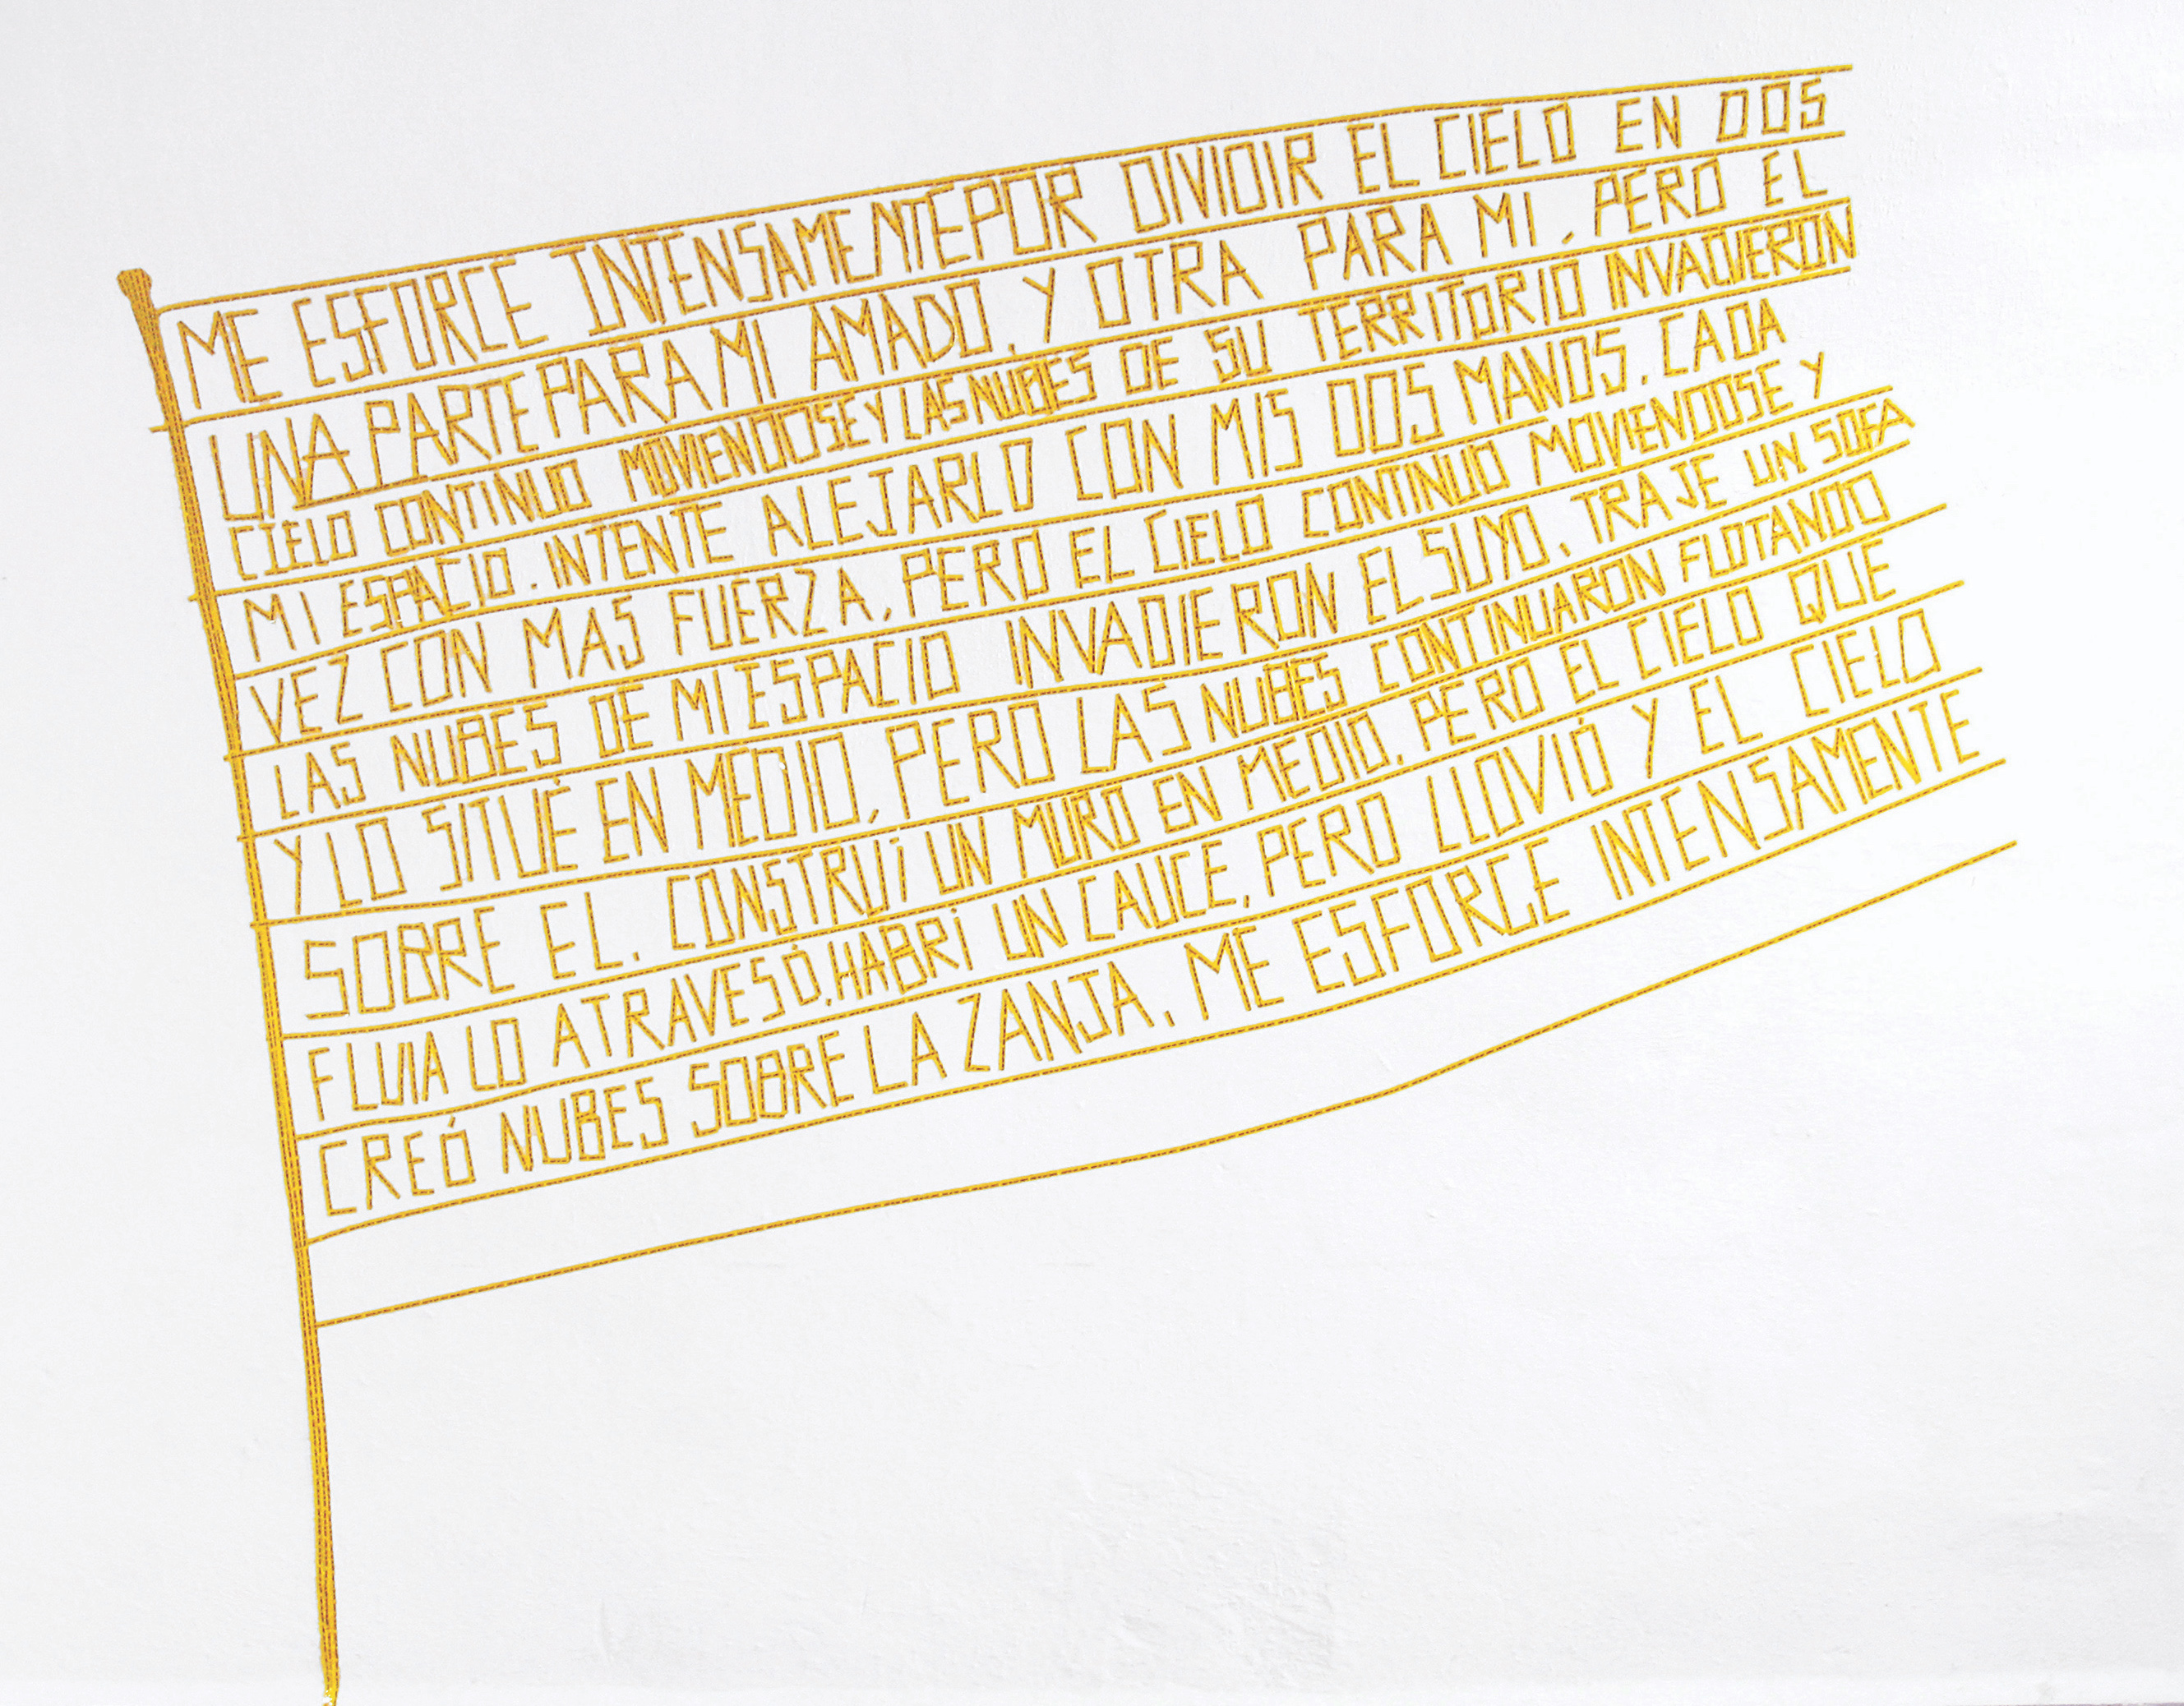 ME ESFORCE INTENSAMENTE POR DIVIDIR EL CIELO EN DOS
UNA PARTE PARA MI AMADO, Y OTRA PARA MI, PERO EL
CIELO CONTINUO MOVIENDOSE Y LAS NUBES DE SU TERRITORIO INVADIERON
MI ESPACIO. INTENTE ALEJARLO CON MIS DOS MANOS, CADA
VEZ CON MAS FUERZA, PERO EL CIELO CONTINUO MOVIENDOSE Y
LAS NUBES DE MI ESPACIO INVADIERON EL SUYO, TRAJE UN SOFA
Y LO SITUÉ EN MEDIO, PERO LAS NUBES CONTINUARON FLOTANDO
SOBRE EL. CONSTRUÍ UN MURO EN MEDIO, PERO EL CIELO QUE
FLUIA LO ATRAVESÓ, HABRÍ UN CAUCE, PERO LLOVIÓ Y EL CIELO
CREÓ NUBES SOBRE LA ZANJA, ME ESFORCE INTENSAMENTE